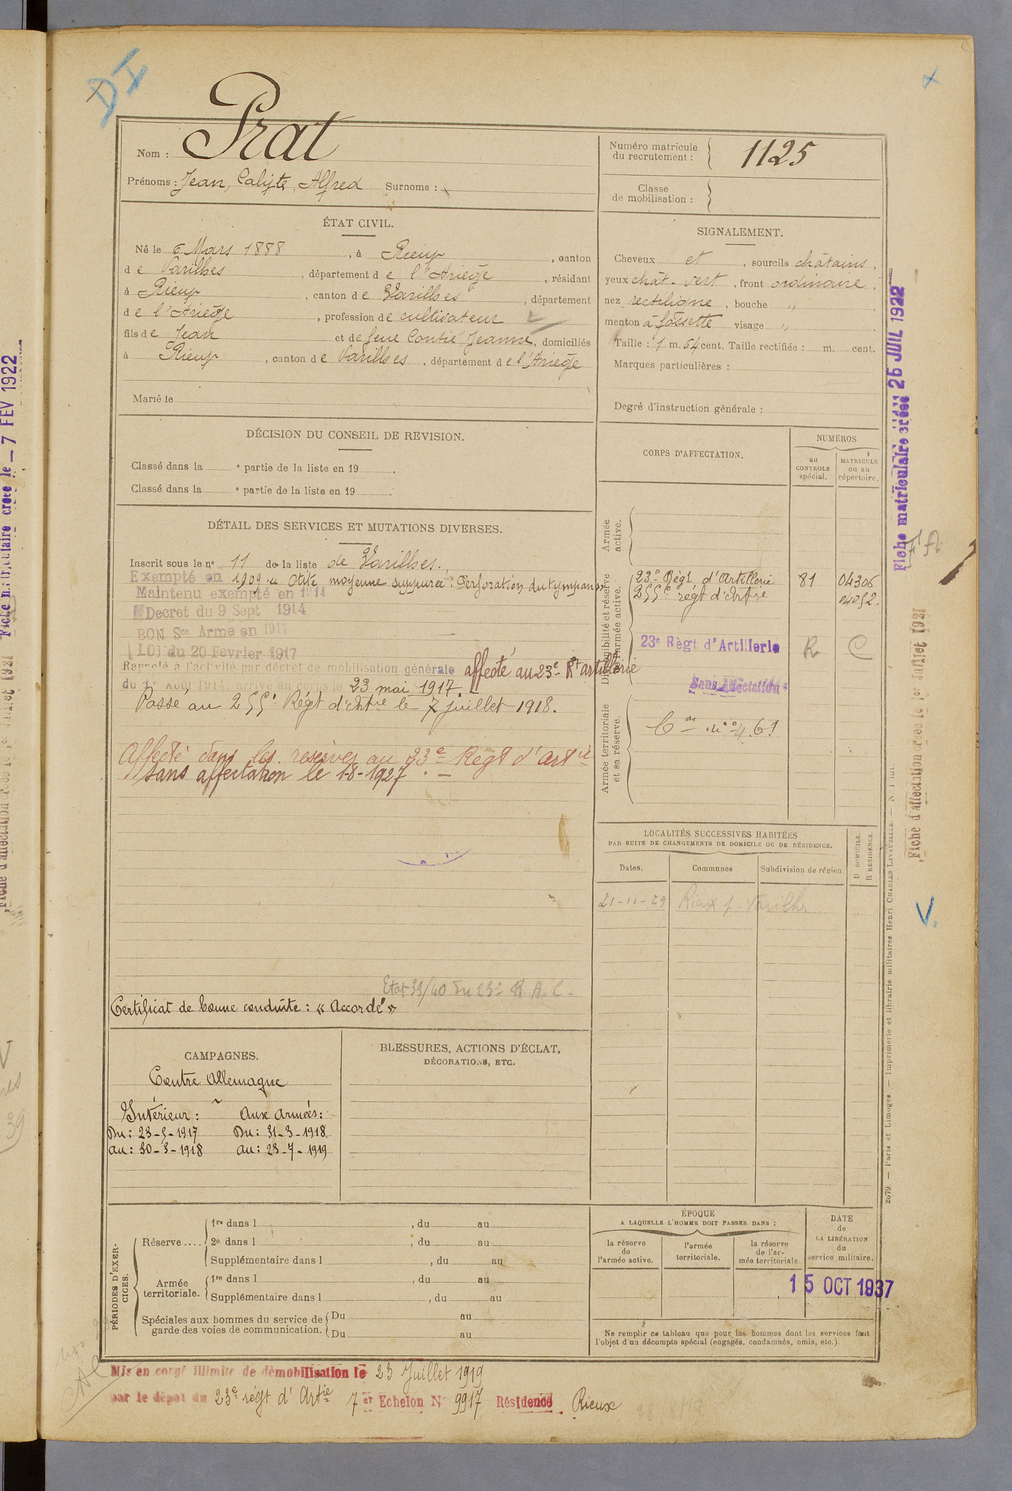 DI
Nom : Prat
Prénoms : Jean, Calixte, Alfred Surnoms :
Numéro matricule du recrutement : 1125
Classe de mobilisation :
ÉTAT CIVIL.
Né le 6 Mars 1888, à Rieux, canton
de Varilhes, département de l'Ariège, résidant
à Rieux, canton de Varilhes, département
de l'Ariège, profession de cultivateur
fils de Jean et de feue Contié Jeanne, domiciliés
à Rieux, canton de Varilhes, département de l'Ariège
Marié le
SIGNALEMENT.
Cheveux et, sourcils châtains,
yeux chât. vert, front ordinaire,
nez rectiligne, bouche "
menton à fossette visage "
Taille : 1 m. 64 cent. Taille rectifiée : m. cent.
Marques particulières :
Degré d'instruction générale :
DÉCISION DU CONSEIL DE REVISION.
Classé dans la e partie de la liste en 19
Classé dans la e partie de la liste en 19
DÉTAIL DES SERVICES ET MUTATIONS DIVERSES.
Inscrit sous le n° 11 de la liste de Varilhes.
Exempté en 1909 Otite moyenne suppurée Perforation du tympan
Maintenu exempté en 1914
Décret du 9 Sept 1914
BON Sce Armé en 1917
LOI du 20 Fevrier 1917
Rappelé à l'activité par décret de mobilisation générale affecté au 23e Rt artillerie
du 1er Aout 1914 23 mai 1917.
Passé au 255e Régt d'Artie le 7 juillet 1918.
Affecté dans les réserves au 23e Régt d'Artie
Sans affectation le 1-8-1927.
Etat 39/40 du 23e R.A.C.
Certificat de bonne conduite : « Accordé »
CORPS D'AFFECTATION.
NUMÉROS
au CONTROLE spécial.
MATRICULE ou au répertoire.
Armée active.
Disponibilité et réserve de l'armée active.
23e Régt d'Artillerie 81 04306
255e régt d'Artie 04052
23e Règt d'Artillerie R C
Sans Affectation
Armée territoriale et sa réserve.
LOCALITÉS SUCCESSIVES HABITÉES
PAR SUITE DE CHANGEMENTS DE DOMICILE OU DE RÉSIDENCE.
Dates. Communes Subdivision de région D DOMICILE. R RÉSIDENCE.
21-11-29 Rieux
CAMPAGNES.
Contre Allemagne
Intérieur : Aux armées :
Du : 23-5-1917 Du : 31-3-1918
au : 30-3-1918 au : 23-7-1919
BLESSURES, ACTIONS D'ÉCLAT,
DÉCORATIONS, ETC.
PÉRIODES D'EXERCICES.
Réserve.... 1re dans l, du au
2e dans l, du au
Supplémentaire dans l, du au
Armée territoriale. 1re dans l, du au
Supplémentaire dans l, du au
Spéciales aux hommes du service de garde des voies de communication. Du au
Du au
ÉPOQUE
A LAQUELLE L'HOMME DOIT PASSER DANS :
la réserve de l'armée active.
l'armée territoriale.
la réserve de l'armée territoriale
DATE de LA LIBÉRATION du service militaire.
15 OCT 1937
Ne remplir ce tableau que pour les hommes dont les services font
l'objet d'un décompte spécial (engagés, condamnés, omis, etc.).
Mis en congé illimité de démobilisation le 23 Juillet 1919
par le dépot du 23e régt d'Artie 7er Echelon N° 9917 Résidence Rieux
Fiche matriculaire créée 26 JUIL 1922
Fiche d'affectation créée le 1er Juillet 1921
2679. — Paris et Limoges. — Imprimerie et librairie militaires Henri CHARLES-LAVAUZELLE.
Fiche matriculaire créée le - 7 FEV 1922